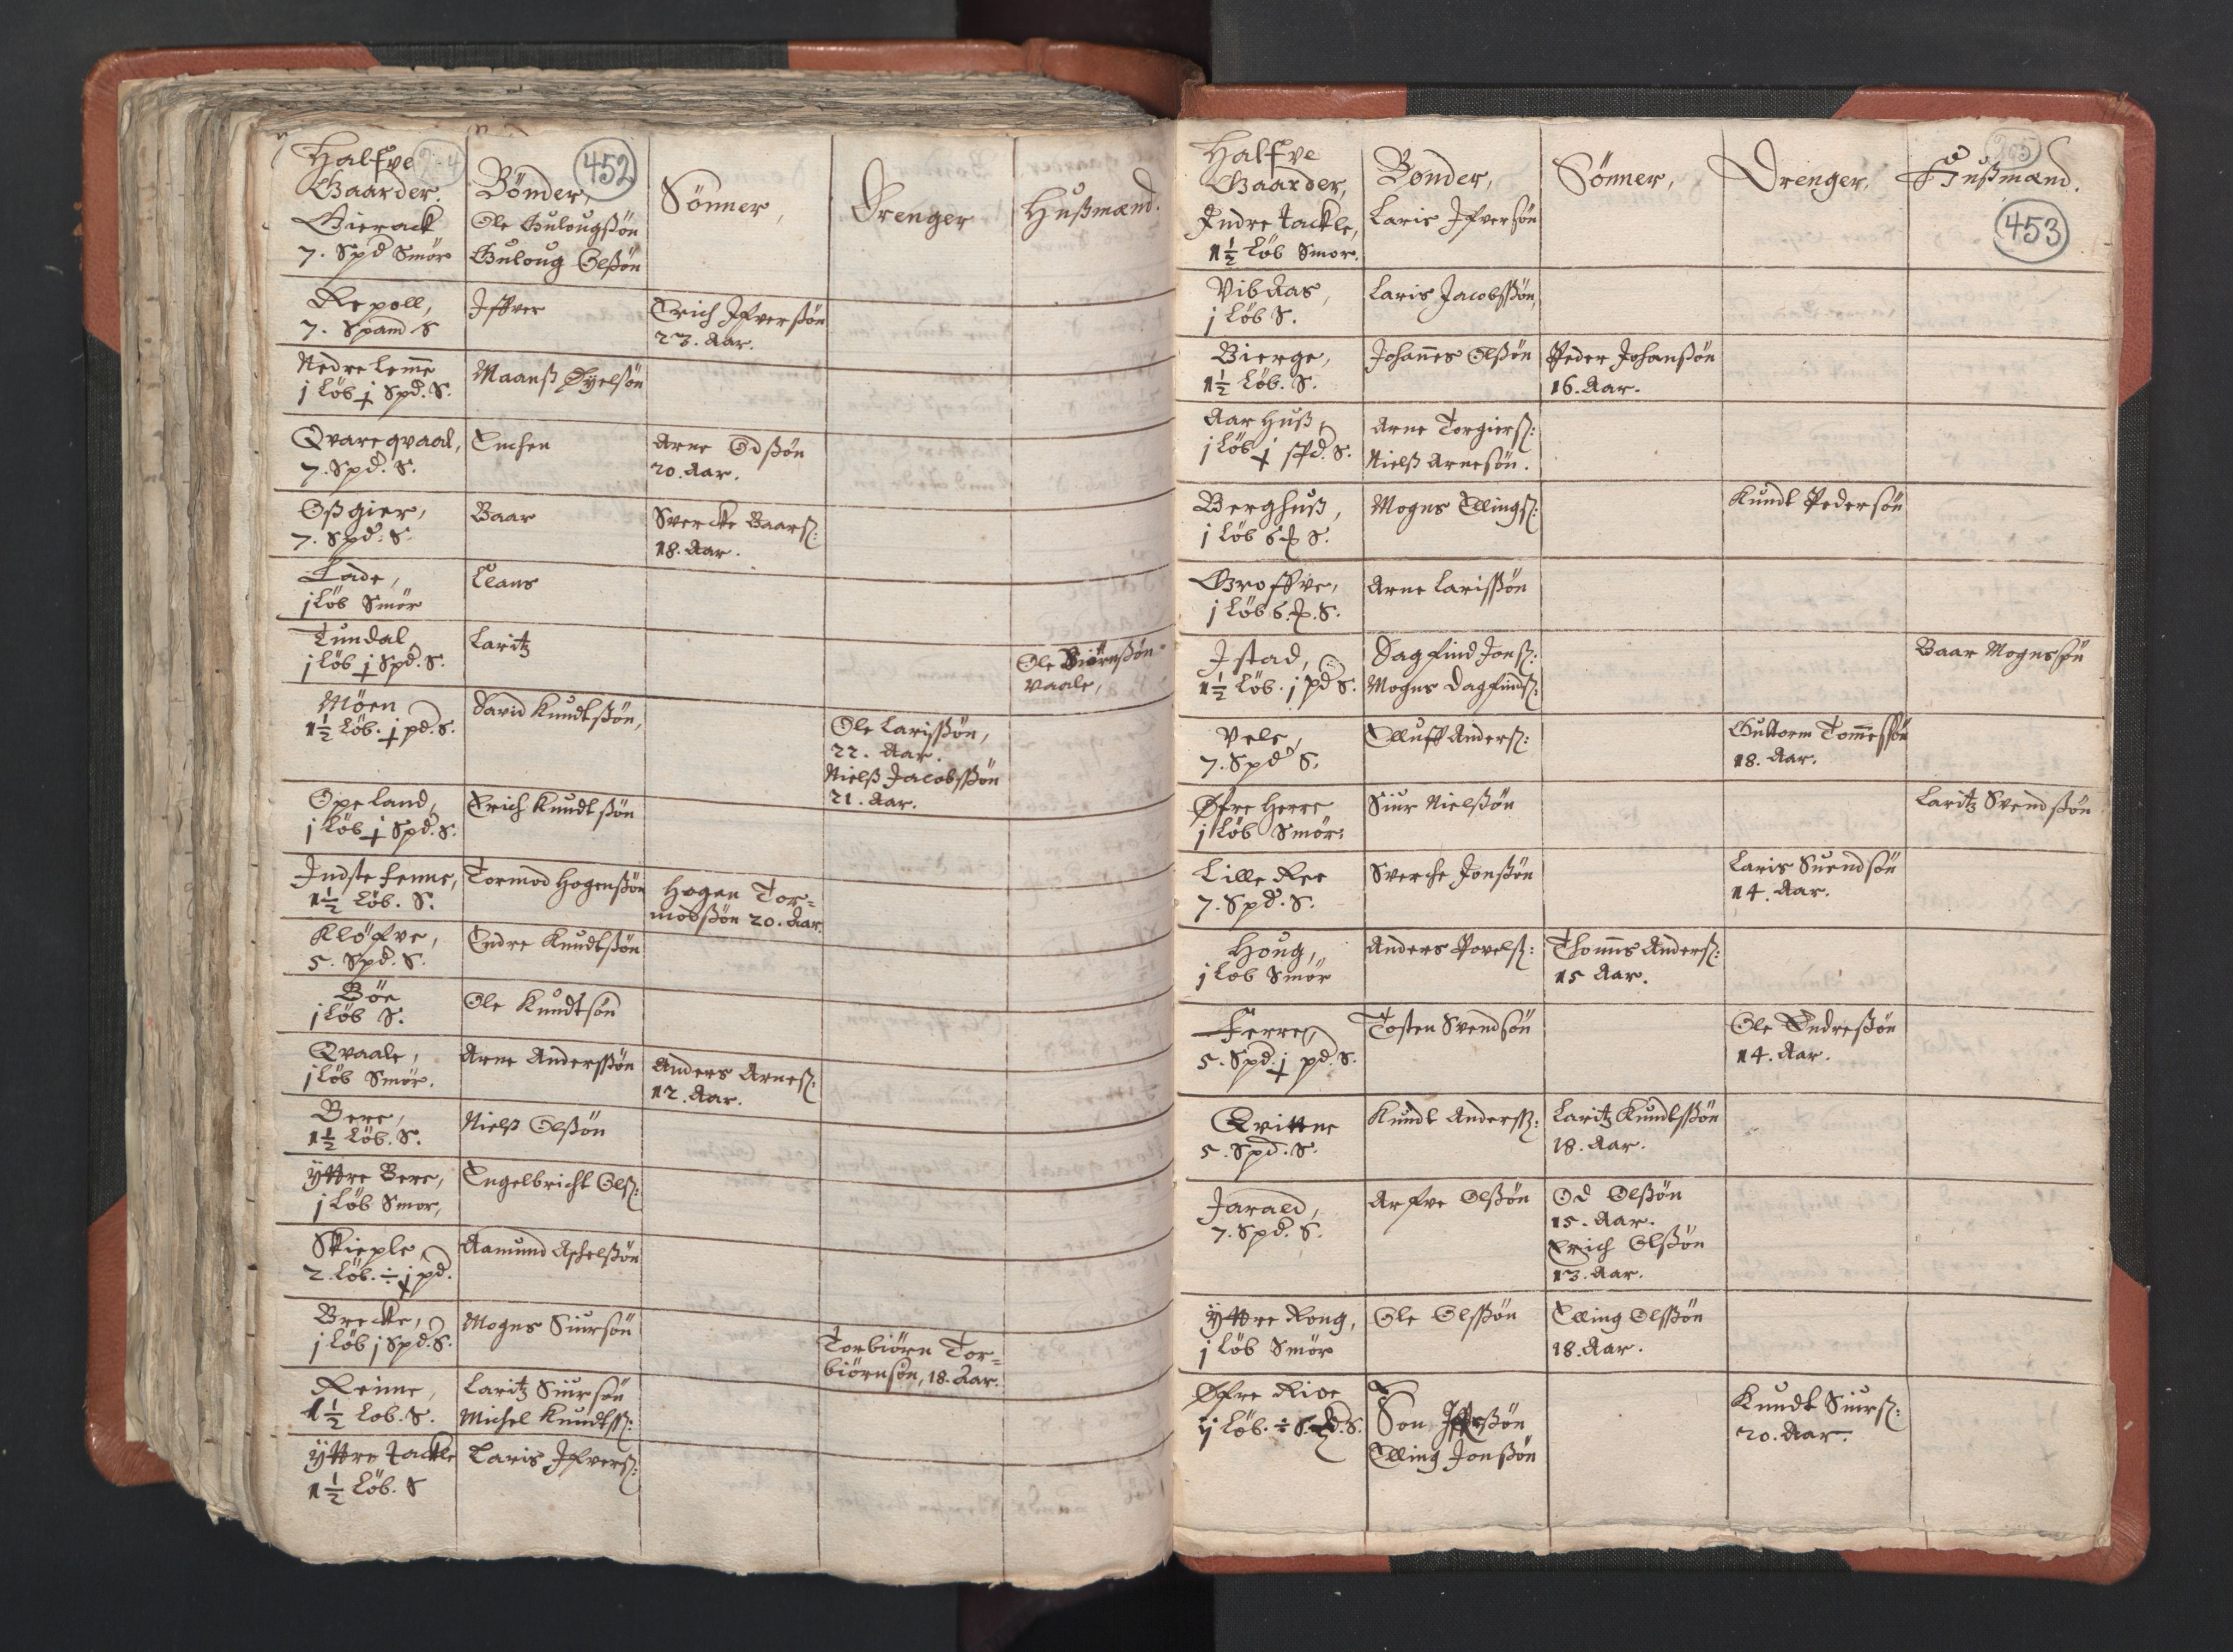 Halfve
Gaarder.
452
Bönder,
Sönner,
Drenger
Hußmænd.
Gierack
7. Spd Smör
Ole Gulougßön
Guloug Olßön
Repoll,
7. Spand S
Jffver
Erich Jfverßön
23. Aar.
Nedre Leme
j Löb j Spd. S.
Maanß Øÿelßön
Qvareqvaal,
7. Spd. S.
Enchen
Arne Odßön
20. Aar.
Oßgier,
7. Spd. S.
Baar
Svercke Baarß:
18. Aar.
Lade,
j Löb Smör
Claus
Tundal
j Löb j Spd. S.
Laritz
Ole Biörnßön
Vaale,
Möen
1½ Löb. j pd. S.
David Knudtßön,
Ole Larißßön,
22. Aar.
Nielß Jacobßßön
21. Aar.
Opeland,
j Löb j Spd. S.
Erich Knudtßön
Indste Fenne,
1½ Löb. S.
Tormod Hogenßön
Hogen Tor=
modßön 20. Aar
Klöfve,
5. Spd. S.
Endre Knudtßön
Böe
j Löb S.
Ole Knudtsön
Qvaale,
j Löb Smör.
Arne Anderßön
Anders Arneß:
12. Aar.
Bere,
1½ Löb. S.
Nielß Olßön
Ÿttre Bere,
j Löb Smor,
Engelbricht Olß:
Skieple,
2. Löb. ÷ j pd.
Aamund Aschelßön
Brecke,
j Löb j Spd. S.
Mogns Siursön
Torbiörn Tor=
biörnsön, 18. Aar.
Reime,
1½ Löb. S.
Laritz Siursön
Michel Knudtß:
Ÿttre Tackle
1½ Löb. S
Laris Jfverß:
Halfve
Gaarder,
Bönder,
Sönner,
Drenger,
Hußmænd.
453
Indre Tackle,
1½ Löb Smor.
Laris Jfversön
Vibaas,
j Löb S.
Laris Jacobßön,
Bierge,
1½ Löb. S.
Johannes Olßön
Peder Johanßön
16. Aar.
Aarhuß,
j Löb j spd. S.
Arne Torgierß:
Nielß Arnesön.
Berghuß,
j Löb 6 S.
Mogns Ellingß:
Knudt Pedersön
Groffve,
j Löb 6. S.
Arne Larißßön
Jstad,
1½ Löb. j pd S.
Dagfind Jonß:
Mogns Dagfindß:
Baar Mognsßön
Vele,
7. Spd S.
Elluff Anderß:
Guttorm Tommeßön
18. Aar.
Øfre Herre
j Löb Smör
Siur Nielßön
Laritz Svendßön
Lille Ree
7. Spd. S.
Sverche Jonßön
Laris Suendsön
14. Aar.
Houg,
j Löb Smör
Anders Povelß:
Thomas Anderß:
15 Aar.
Ferre,
5. Spd. j pd. S.
Tosten Svendsön
Ole Endreßön
14. Aar.
Qvittne
5. Spd. S.
Knudt Anderß:
Laritz Knudtßön
18. Aar.
Jarald,
7. Spd. S.
Arfve Olßön
Od Olßön
15. Aar.
Erich Olßön
13. Aar.
Ÿttre Rong,
j Löb Smör
Ole Olßön
Elling Olßön
18. Aar.
Øfre Rioe
ij Löb. ÷
Elling Jonßön
Knudt Siurß:
20. Aar.